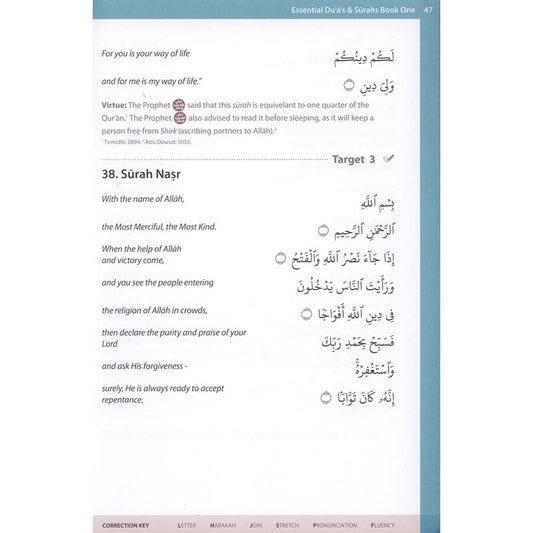 Essential Du'ā's & Sūrahs Book One 47
For you is your way of life
لَكُمْ دِينُكُمْ
and for me is my way of life."
وَلِيَ دِينِ
Virtue: The Prophet ﷺ said that this sūrah is equivelant to one quarter of the
Qur'ān.¹ The Prophet ﷺ also advised to read it before sleeping, as it will keep a
person free from Shirk (ascribing partners to Allāh).²
¹ Tirmidhi: 2894, ² Abū Dāwūd: 5055.
Target 3
38. Sūrah Naṣr
With the name of Allāh,
بِسْمِ ٱللَّهِ
the Most Merciful, the Most Kind.
ٱلرَّحْمَٰنِ ٱلرَّحِيمِ
When the help of Allāh
and victory come,
إِذَا جَآءَ نَصْرُ ٱللَّهِ وَٱلْفَتْحُ
and you see the people entering
وَرَأَيْتَ ٱلنَّاسَ يَدْخُلُونَ
the religion of Allāh in crowds,
فِى دِينِ ٱللَّهِ أَفْوَاجًا
then declare the purity and praise of your
Lord
فَسَبِّحْ بِحَمْدِ رَبِّكَ
and ask His forgiveness -
وَٱسْتَغْفِرْهُ ۚ
surely, He is always ready to accept
repentance.
إِنَّهُۥ كَانَ تَوَّابًۢا
CORRECTION KEY LETTER HARAKAH JOIN STRETCH PRONUNCIATION FLUENCY